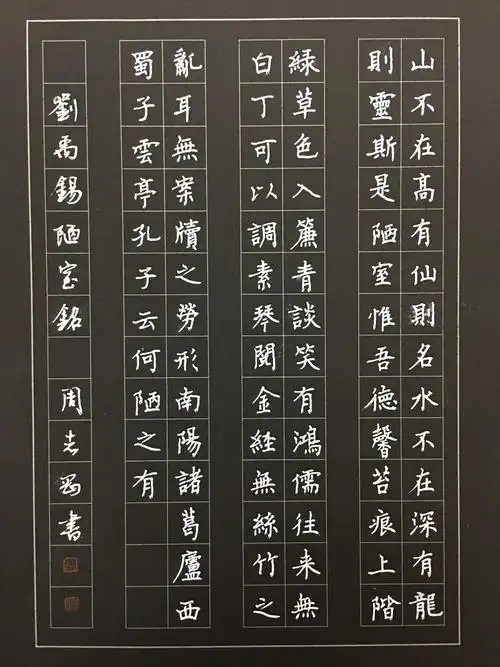 山不在高有仙則名水不在深有龍
則靈斯是陋室惟吾德馨苔痕上階
綠草色入簾青談笑有鴻儒往来無
白丁可以調素琴閱金経無絲竹之
亂耳無案牘之勞形南陽諸葛廬西
蜀子雲亭孔子云何陋之有
劉禹錫陋室銘 周志書